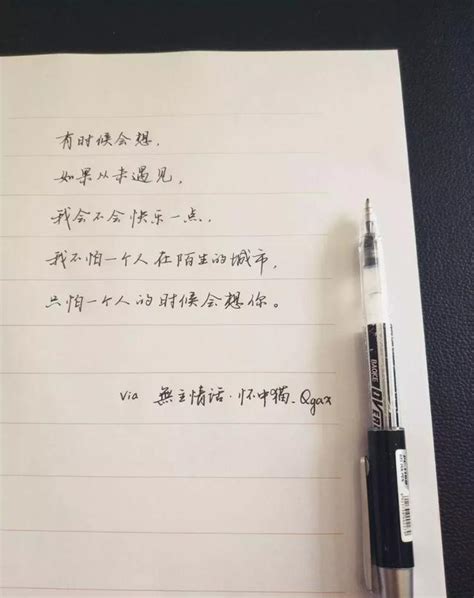 有时候会想，
如果从未遇见，
我会不会快乐一点，
我不怕一个人在陌生的城市，
只怕一个人的时候会想你。
via 無主情话·怀中猫_Qgax
BAOKE